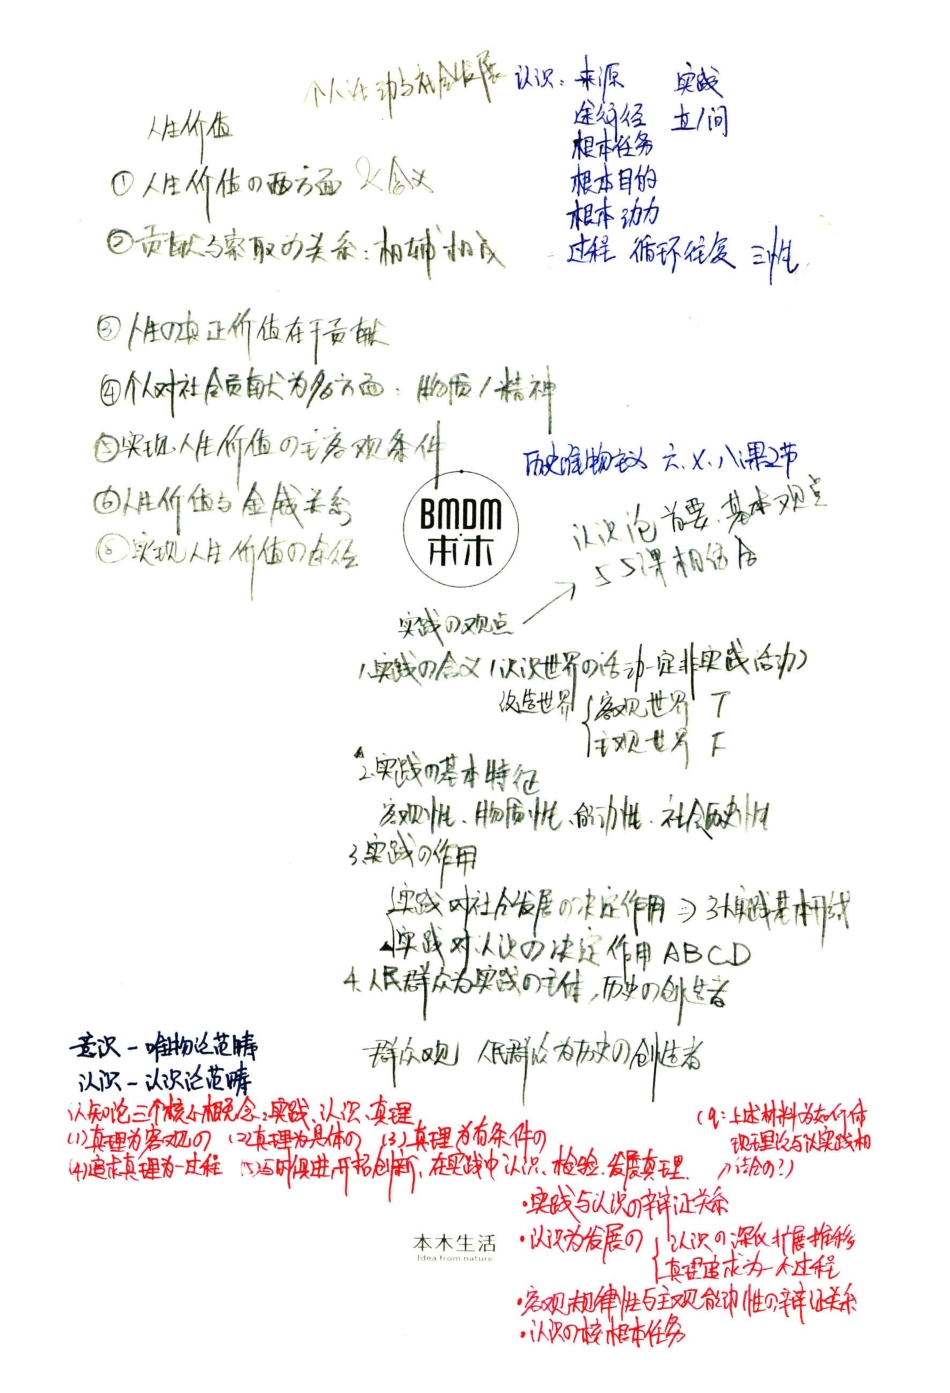 个人活动与社会发展
人生价值
①人生价值の两方面 含义
②贡献与索取の关系:相辅相成
③人生の真正价值在于贡献
④个人对社会贡献为多方面:物质/精神
⑤实现人生价值の主客观条件
⑥人生价值与金钱关系
⑧实现人生价值の途径
认识:来源 实践
途径 直/间
根本任务
根本目的
根本动力
过程 循环往复 三性
历史唯物主义 六、七、八课2节
认识论 首要、基本观点
与5课相结合
BMDM
本木
实践の观点
1.实践の含义(认识世界の活动一定非实践活动)
改造世界 客观世界 T
主观世界 F
2.实践の基本特征
客观性、物质性、能动性、社会历史性
3.实践の作用
实践对社会发展の决定作用⇒3大实践基本形式
▲实践对认识の决定作用ABCD
4.人民群众为实践の主体,历史の创造者
群众观 人民群众为历史の创造者
意识-唯物论范畴
认识-认识论范畴
认知论三个核心概念:实践、认识、真理
(1)真理为客观の (2)真理为具体の (3)真理为有条件の
(4)追求真理为一过程 (5)与时俱进开拓创新,在实践中认识、检验、发展真理
(q:上述材料为如何体
现理论与认实践相
结合の?)
·实践与认识の辩证关系
·认识为发展の 认识の深化扩展推移
真理追求为一个过程
·客观规律性与主观能动性の辩证关系
·认识の根本任务
本木生活
Idea from nature